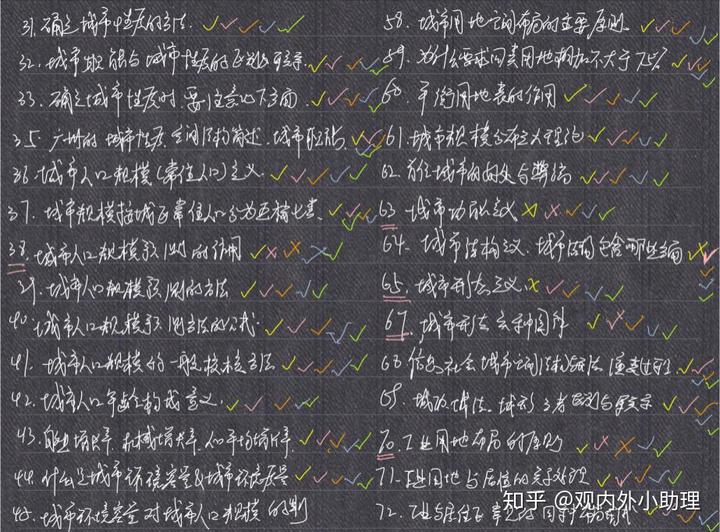 31. 确定城市性质的方法
32. 城市职能与城市性质的区别联系
33. 确定城市性质时,要注意以下方面
35. 广州的城市性质、空间结构简述、城市职能
36. 城市人口规模(常住人口)定义
37. 城市规模按城区常住人口分为五档七类
38. 城市人口规模预测的作用
39. 城市人口规模预测的方法
40. 城市人口规模预测方法的公式
41. 城市人口规模的一般校核方法
42. 城市人口年龄构成意义
43. 自然增长率、机械增长率、人口平均增长率
44. 什么是城市环境容量&城市环境质量
45. 城市环境容量对城市人口规模的制
58. 城市用地空间布局的主要原则
59. 为什么要求四类用地相加不大于75%
60. 平衡用地表的作用
61. 城市规模分布定义理论
62. 首位城市的内涵与弊端
63. 城市功能定义
64. 城市结构定义、城市结构包含哪些方面
65. 城市形态定义
67. 城市形态六种图解
68. 信息社会城市空间结构形态演变过程
69. 城市 三者区别与联系
70. 工业用地布局的原则
71. 工业用地与居住的关系处理
72. 工业与居住
知乎 @观内外小助理